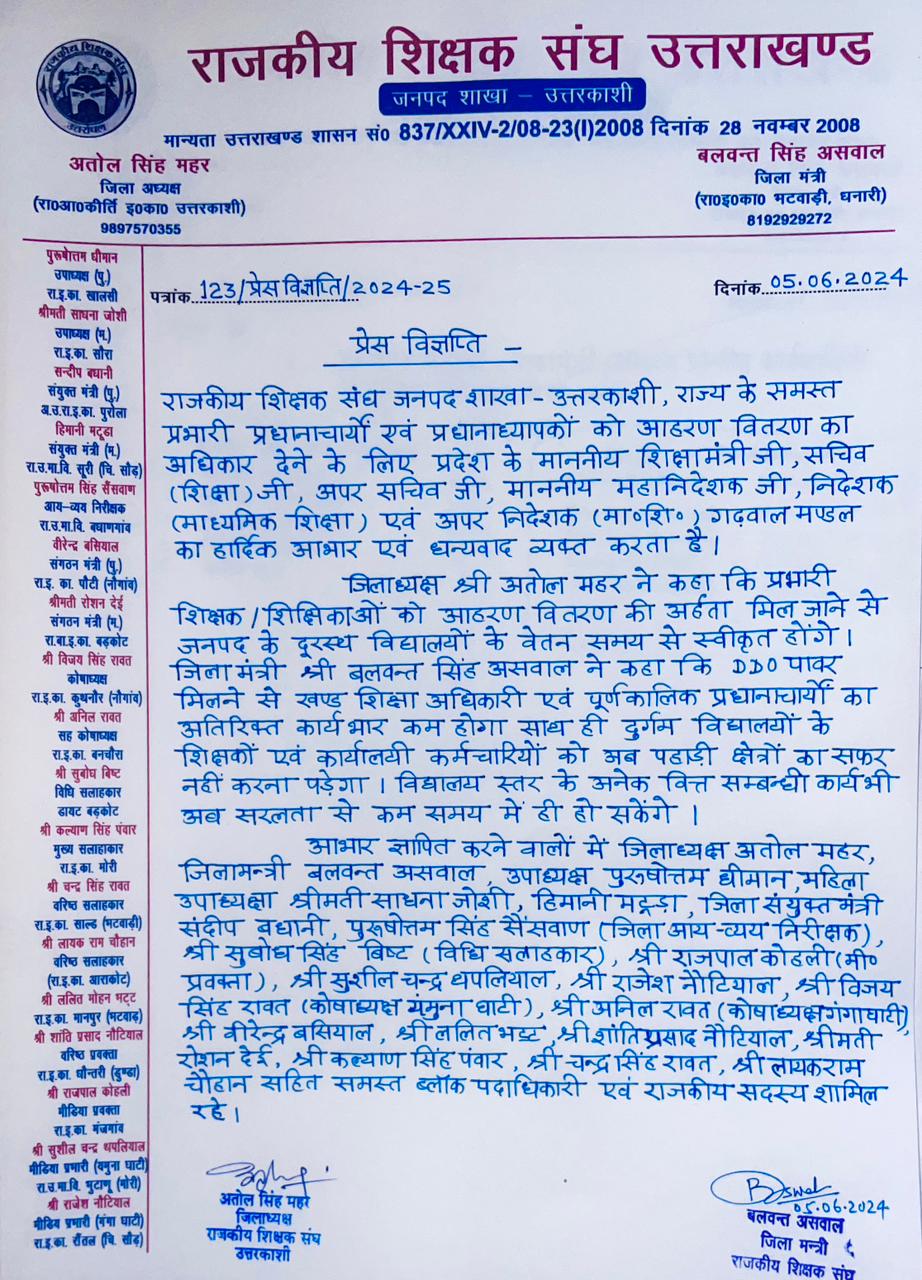 राजकीय शिक्षक संघ उत्तराखण्ड
जनपद शाखा – उत्तरकाशी
मान्यता उत्तराखण्ड शासन सं0 837/XXIV-2/08-23(I)2008 दिनांक 28 नवम्बर 2008
राजकीय शिक्षक संघ
उत्तरांचल
अतोल सिंह महर
जिला अध्यक्ष
(रा0आ0कीर्ति इ0का0 उत्तरकाशी)
9897570355
बलवन्त सिंह असवाल
जिला मंत्री
(रा0इ0का0 भटवाड़ी, धनारी)
8192929272
पुरूषोत्तम धीमान
उपाध्यक्ष (पु.)
रा.इ.का. खालसी
श्रीमती साधना जोशी
उपाध्यक्ष (म.)
रा.इ.का. सौरा
सन्दीप बधानी
संयुक्त मंत्री (पु.)
अ.उ.रा.इ.का. पुरोला
हिमानी मटूडा
संयुक्त मंत्री (म.)
रा.उ.मा.वि. सूरी (चि. सौड़)
पुरूषोत्तम सिंह सैंसवाण
आय–व्यय निरीक्षक
रा.उ.मा.वि. बधाणगांव
वीरेन्द्र बसियाल
संगठन मंत्री (पु.)
रा.इ. का. पौटी (नौगांव)
श्रीमती रोशन देई
संगठन मंत्री (म.)
रा.बा.इ.का. बड़कोट
श्री विजय सिंह रावत
कोषाध्यक्ष
रा.इ.का. कुथनौर (नौगांव)
श्री अनिल रावत
सह कोषाध्यक्ष
रा.इ.का. बनचौरा
श्री सुबोध बिष्ट
विधि सलाहकार
डायट बड़कोट
श्री कल्याण सिंह पंवार
मुख्य सलाहाकार
रा.इ.का. मोरी
श्री चन्द्र सिंह रावत
वरिष्ठ सलाहकार
रा.इ.का. साल्ड (भटवाड़ी)
श्री लायक राम चौहान
वरिष्ठ सलाहकार
(रा.इ.का. आराकोट)
श्री ललित मोहन भट्ट
रा.इ.का. मानपुर (भटवाड़)
श्री शांति प्रसाद नौटियाल
वरिष्ठ प्रवक्ता
रा.इ.का. धौन्तरी (डुण्डा)
श्री राजपाल कोहली
मीडिया प्रवक्ता
रा.इ.का. मंजगांव
श्री सुशील चन्द्र थपलियाल
मीडिया प्रभारी (यमुना घाटी)
रा.उ.मा.वि. भुटाणू (मोरी)
श्री राजेश नौटियाल
मीडिया प्रभारी (गंगा घाटी)
रा.इ.का. रौंतल (चि. सौड़)
पत्रांक 123/प्रेस विज्ञप्ति/2024-25
दिनांक 05.06.2024
प्रेस विज्ञप्ति –
राजकीय शिक्षक संघ जनपद शाखा - उत्तरकाशी, राज्य के समस्त
प्रभारी प्रधानाचार्यों एवं प्रधानाध्यापकों को आहरण वितरण का
अधिकार देने के लिए प्रदेश के माननीय शिक्षामंत्री जी, सचिव
(शिक्षा) जी, अपर सचिव जी, माननीय महानिदेशक जी, निदेशक
(माध्यमिक शिक्षा) एवं अपर निदेशक (मा॰शि॰) गढ़वाल मण्डल
का हार्दिक आभार एवं धन्यवाद व्यक्त करता है।
जिलाध्यक्ष श्री अतोल महर ने कहा कि प्रभारी
शिक्षक / शिक्षिकाओं को आहरण वितरण की अर्हता मिल जाने से
जनपद के दूरस्थ विद्यालयों के वेतन समय से स्वीकृत होंगे।
जिला मंत्री श्री बलवन्त सिंह असवाल ने कहा कि DDO पावर
मिलने से खण्ड शिक्षा अधिकारी एवं पूर्णकालिक प्रधानाचार्यों का
अतिरिक्त कार्यभार कम होगा साथ ही दुर्गम विद्यालयों के
शिक्षकों एवं कार्यालयी कर्मचारियों को अब पहाड़ी क्षेत्रों का सफर
नहीं करना पड़ेगा। विद्यालय स्तर के अनेक वित्त सम्बन्धी कार्य भी
अब सरलता से कम समय में ही हो सकेंगे।
आभार ज्ञापित करने वालों में जिलाध्यक्ष अतोल महर,
जिलामन्त्री बलवन्त असवाल, उपाध्यक्ष पुरूषोत्तम धीमान, महिला
उपाध्यक्षा श्रीमती साधना जोशी, हिमानी मटूड़ा, जिला संयुक्त मंत्री
संदीप बधानी, पुरूषोत्तम सिंह सैंसवाण (जिला आय-व्यय निरीक्षक),
श्री सुबोध सिंह बिष्ट (विधि सलाहकार), श्री राजपाल कोहली (मी॰
प्रवक्ता), श्री सुशील चन्द्र थपलियाल, श्री राजेश नौटियाल, श्री विजय
सिंह रावत (कोषाध्यक्ष यमुना घाटी), श्री अनिल रावत (कोषाध्यक्ष गंगाघाटी),
श्री वीरेन्द्र बसियाल, श्री ललित भट्ट, श्री शांति प्रसाद नौटियाल, श्रीमती
रोशन देई, श्री कल्याण सिंह पंवार, श्री चन्द्र सिंह रावत, श्री लायकराम
चौहान सहित समस्त ब्लॉक पदाधिकारी एवं राजकीय सदस्य शामिल
रहे।
अतोल सिंह महर
जिलाध्यक्ष
राजकीय शिक्षक संघ
उत्तरकाशी
05.06.2024
बलवन्त असवाल
जिला मन्त्री
राजकीय शिक्षक संघ